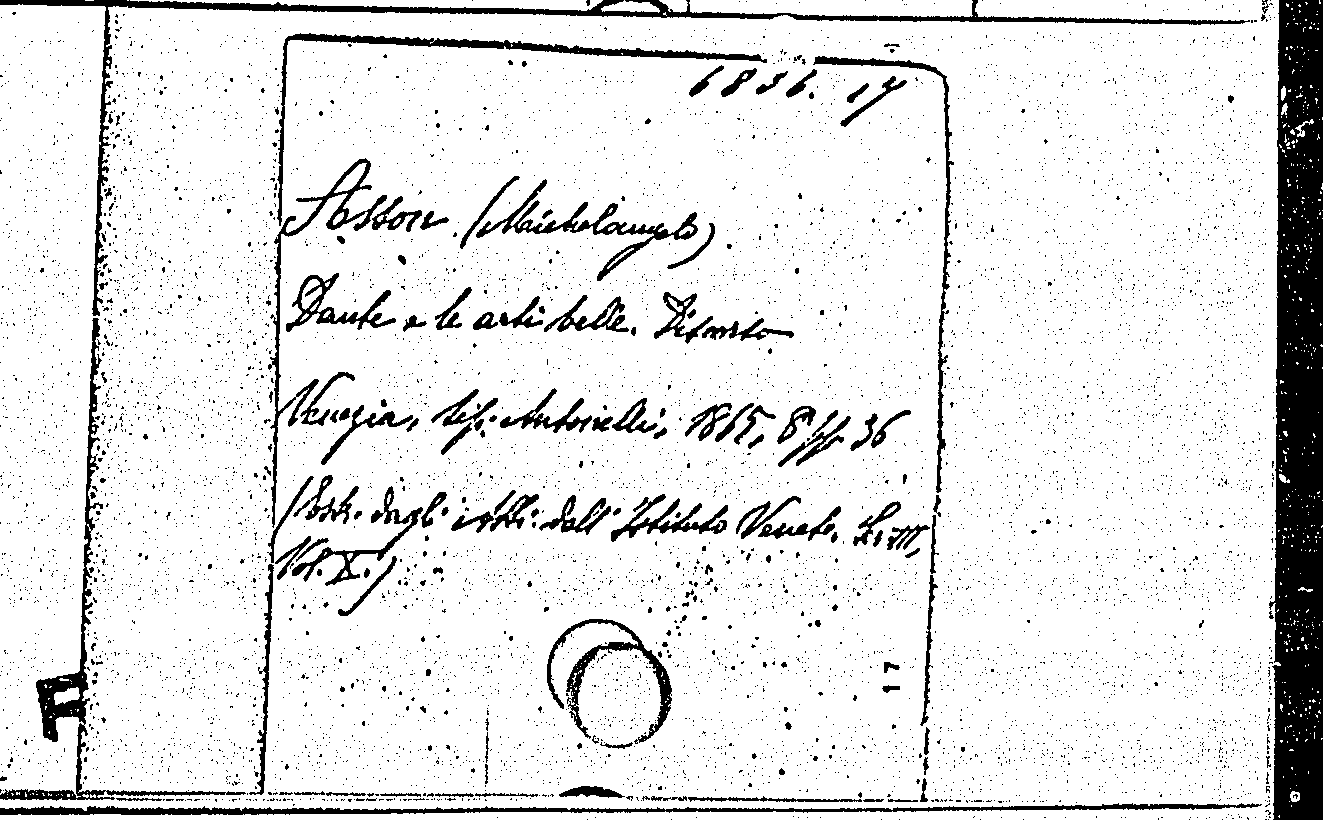 6836. 17
Asson (Michelangelo)
Dante e le arti belle.
Venezia, tip. Antonelli, 1865, 8° pp. 36
(Estr. dagli atti dell' Istituto Veneto, S. III,
Vol. X.)
17